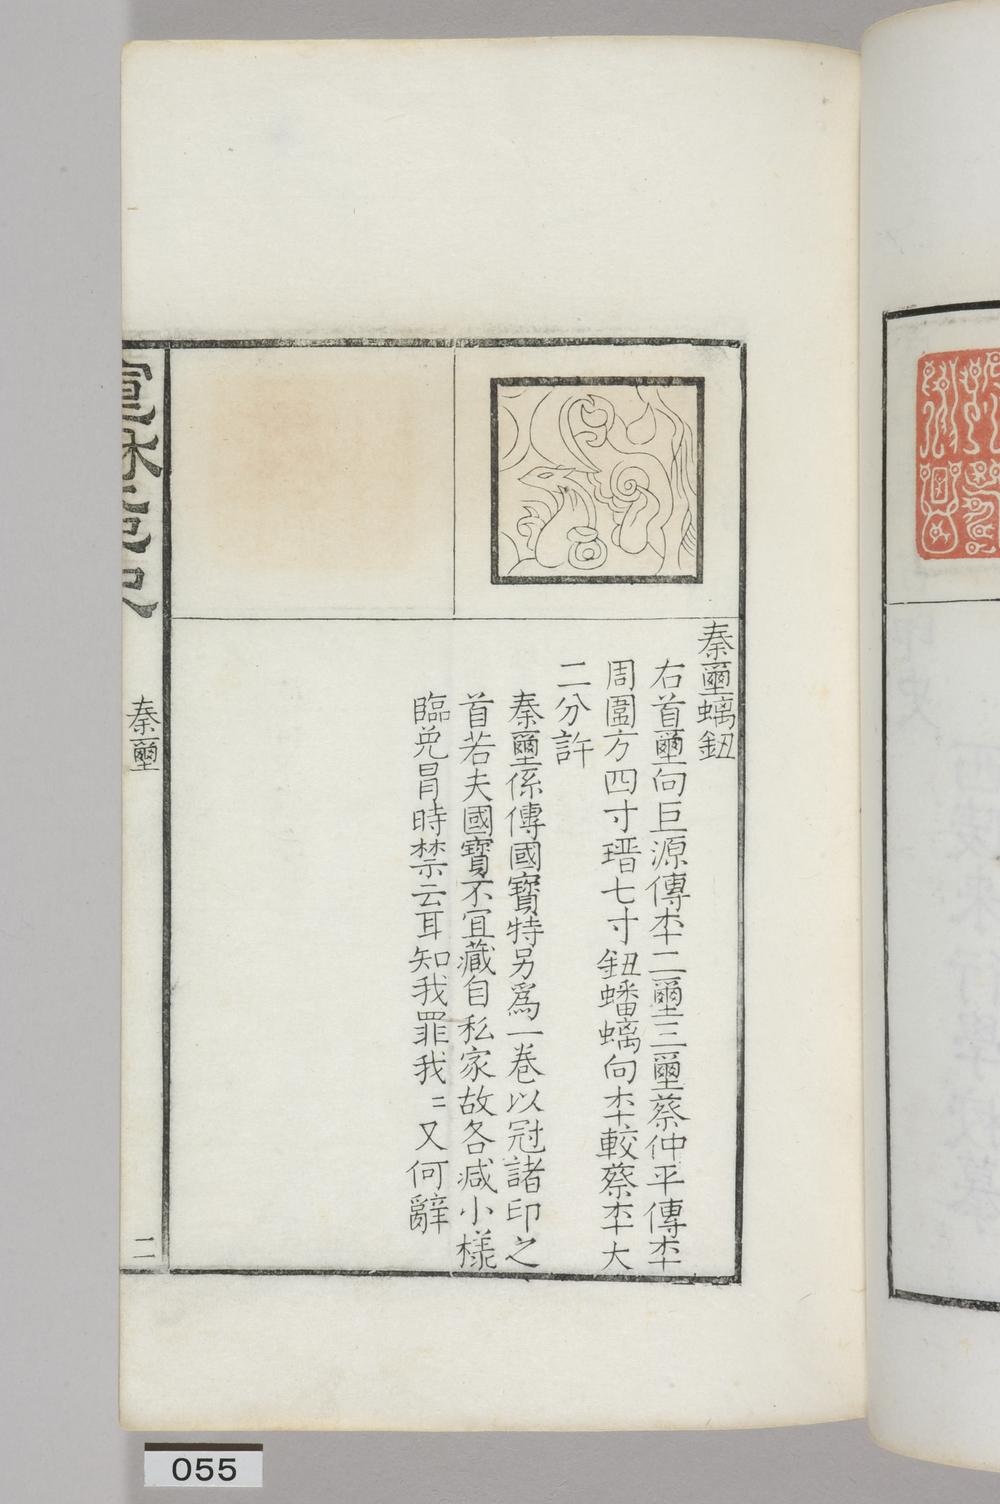 秦璽螭鈕
右首璽向巨源傳本二璽三璽蔡仲平傳本
周圍方四寸瑨七寸鈕蟠螭向本較蔡本大
二分許
秦璽係傳國寶特另為一卷以冠諸印之
首若夫國寶不宜藏自私家故各減小樣
臨免冒時禁云耳知我罪我〻又何辭
秦璽
二
055